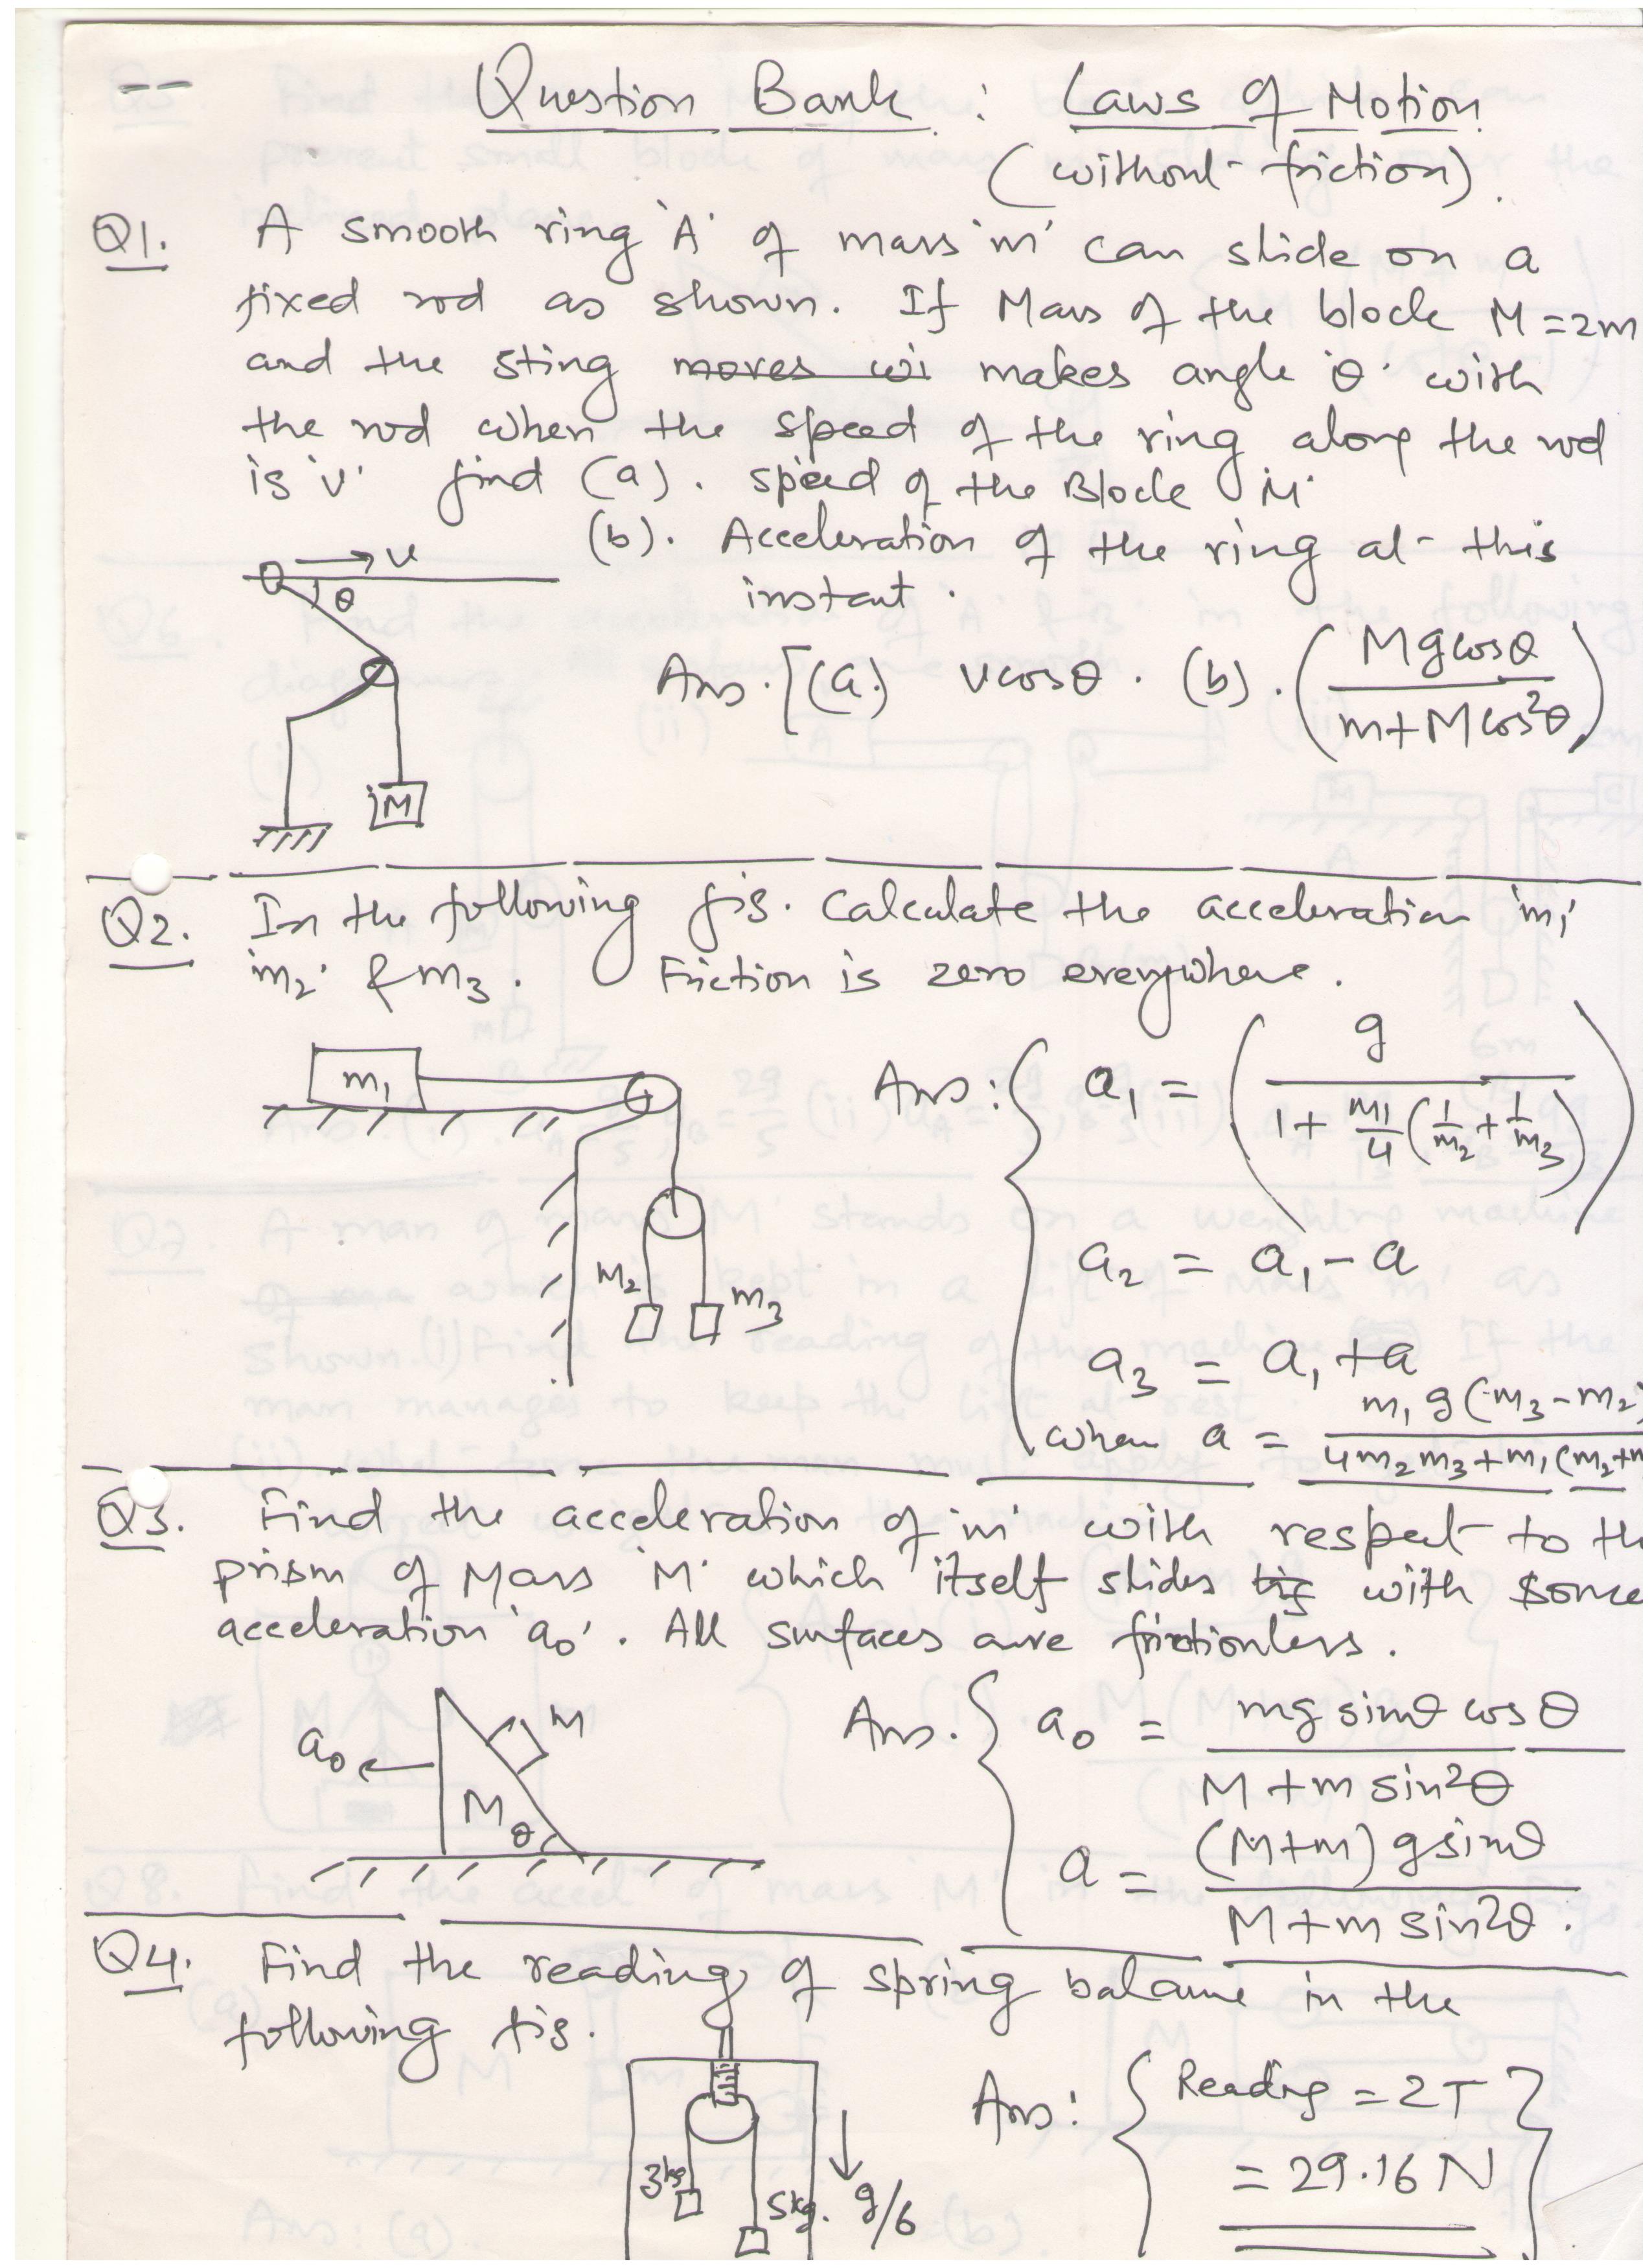 Question Bank : Laws of Motion
(without friction).
Q1. A smooth ring 'A' of mass 'm' can slide on a
fixed rod as shown. If Mass of the block M = 2m
and the sting moves wi makes angle 'θ' with
the rod when the speed of the ring along the rod
is 'v' find (a). speed of the Block 'M'
(b). Acceleration of the ring at this
instant.
v
θ
M
Ans. [(a) vcosθ. (b). (Mgcosθ / m+Mcos²θ)
Q2. In the following fig. Calculate the acceleration 'm1'
'm2' & m3. Friction is zero everywhere.
m1
m2
m3
Ans: { a1 = ( g / 1 + m1/4 (1/m2 + 1/m3) )
a2 = a1 - a
a3 = a1 + a
when a = m1 g (m3 - m2) / 4m2m3 + m1(m2+m
Q3. Find the acceleration of 'm' with respect to th
prism of Mass 'M' which itself slides with some
acceleration 'a0'. All surfaces are frictionless.
a0
M
M
θ
Ans. { a0 = mg sinθ cosθ / M + m sin²θ
a = (M+m) g sinθ / M + m sin²θ.
Q4. Find the reading of spring balance in the
following fig.
3kg
5kg.
g/6
Ans: { Reading = 2T }
= 29.16 N